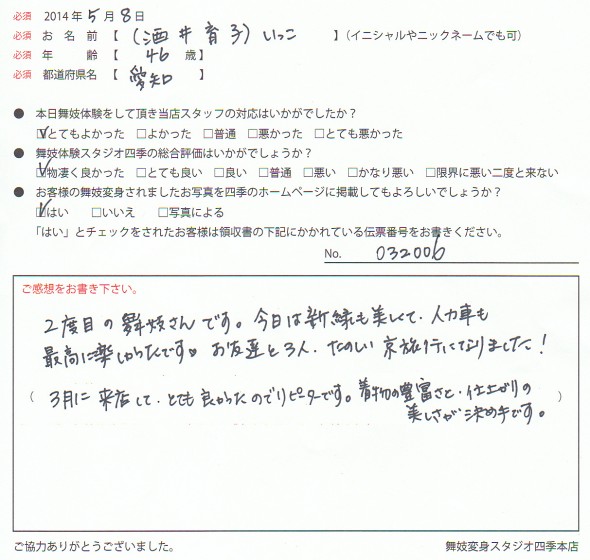 必須 2014年5月8日
必須 お 名 前 【 (酒井育子)いっこ 】(イニシャルやニックネームでも可)
必須 年 齢 【 46 歳】
必須 都道府県名 【 愛知 】
● 本日舞妓体験をして頂き当店スタッフの対応はいかがでしたか？
☑とてもよかった □よかった □普通 □悪かった □とても悪かった
● 舞妓体験スタジオ四季の総合評価はいかがでしょうか？
☑物凄く良かった □とても良い □良い □普通 □悪い □かなり悪い □限界に悪い二度と来ない
● お客様の舞妓変身されましたお写真を四季のホームページに掲載してもよろしいでしょうか？
☑はい □いいえ □写真による
「はい」とチェックをされたお客様は領収書の下記にかかれている伝票番号をお書きください。
No. 032006
ご感想をお書き下さい。
2度目の舞妓さんです。今日は新緑も美しくて、人力車も
最高に楽しかったです。お友達と3人、たのしい京旅行になりました！
(3月に来店して、とても良かったのでリピーターです。着物の豊富さと、仕上がりの
美しさが決め手です。)
ご協力ありがとうございました。
舞妓変身スタジオ四季本店